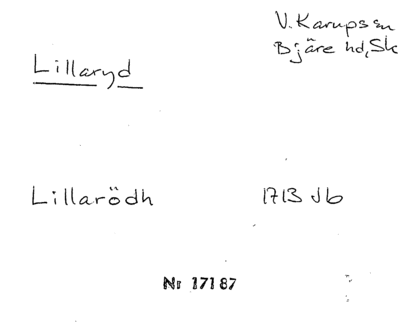 V. Karups sn
Bjäre hd, Sk
Lillaryd
Lillarödh 1713 Jb
Nr 17187